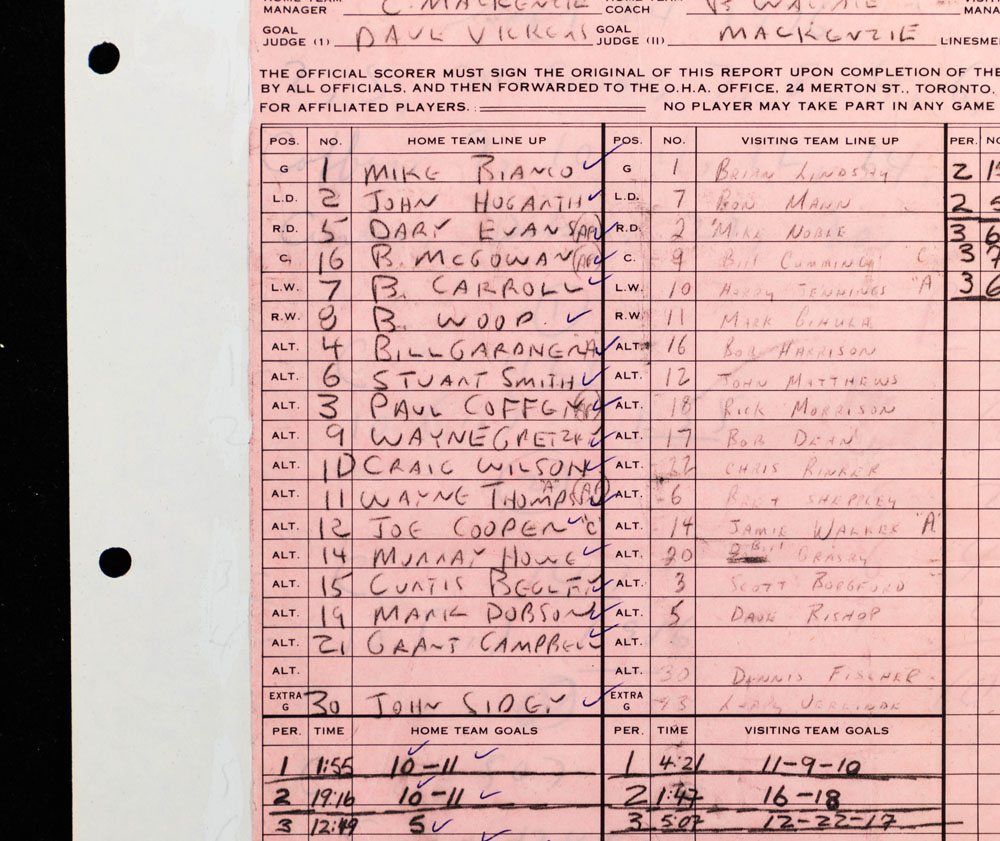 MANAGER C. MACKENZIE COACH MANA
GOAL JUDGE (1) DAVE VICKERS GOAL JUDGE (II) MACKENZIE LINESME
THE OFFICIAL SCORER MUST SIGN THE ORIGINAL OF THIS REPORT UPON COMPLETION OF THE
BY ALL OFFICIALS, AND THEN FORWARDED TO THE O.H.A. OFFICE, 24 MERTON ST., TORONTO.
FOR AFFILIATED PLAYERS. NO PLAYER MAY TAKE PART IN ANY GAME
POS. NO. HOME TEAM LINE UP POS. NO. VISITING TEAM LINE UP PER. NO
G 1 MIKE BIANCO G 1 BRIAN LINDSAY 2 15
L.D. 2 JOHN HOGARTH L.D. 7 RON MANN 2 5
R.D. 5 DARY EVANS (AP) R.D. 2 MIKE NOBLE 3 6
C. 16 B. MCGOWAN (AP) C. 9 BILL CUMMING C 3 7
L.W. 7 B. CARROLL L.W. 10 HARRY JENNINGS "A" 3 6
R.W. 8 B. WOOD R.W. 11 MARK CIHULA
ALT. 4 BILL GARDNER A ALT. 16 BOB HARRISON
ALT. 6 STUART SMITH ALT. 12 JOHN MATTHEWS
ALT. 3 PAUL COFFEY (AP) ALT. 18 RICK MORRISON
ALT. 9 WAYNE GRETZKY ALT. 17 BOB DEAN
ALT. 10 CRAIG WILSON ALT. 22 CHRIS RINKER
ALT. 11 WAYNE THOMPSON "A" (AP) ALT. 6 BRET SHEPPLEY
ALT. 12 JOE COOPER "C" ALT. 14 JAMIE WALKER "A"
ALT. 14 MURRAY HOWE ALT. 20 Bill GRASBY
ALT. 15 CURTIS BEGLEY ALT. 3 SCOTT BORGFORD
ALT. 19 MARK DOBSON ALT. 5 DAVE BISHOP
ALT. 21 GRANT CAMPBELL ALT.
ALT. ALT. 30 DENNIS FISCHER
EXTRA G 30 JOHN SIDEY EXTRA G 93
PER. TIME HOME TEAM GOALS PER. TIME VISITING TEAM GOALS
1 1:55 10-11 1 4:21 11-9-10
2 19:16 10-11 2 1:47 16-18
3 12:49 5 3 5:07 12-22-17